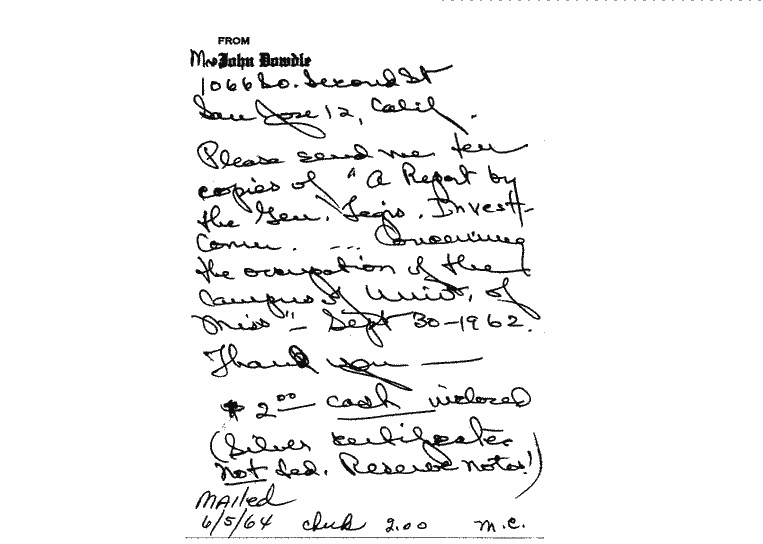 FROM
Mrs John Dowdle
1066 So. Second St
San Jose 12, Calif.
Please send me ten
copies of "A Report by
the Gen. Legis. Invest-
Comm. --- Concerning
the occupation of the
Campus of Univ. of
Miss"- Sept 30-1962.
Thank you —
$2.00 cash inclosed
(Silver certificates
Not Fed. Reserve notes!)
Mailed
6/5/64 check 2.00 M.C.